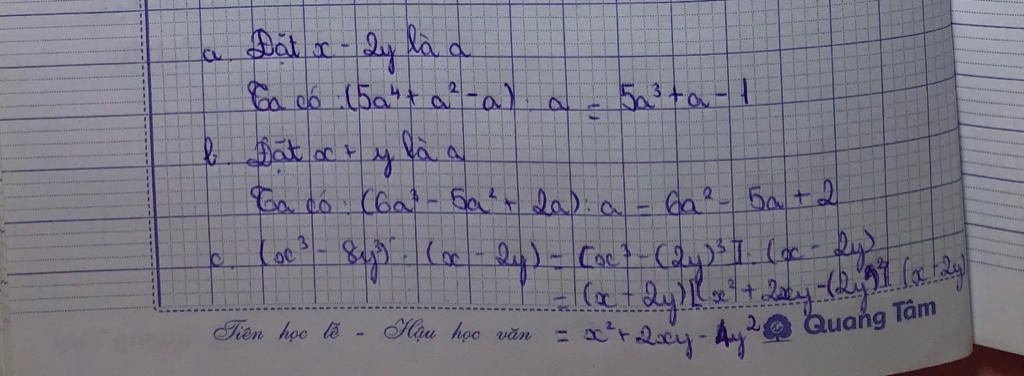 a. Đặt x - 2y là a
Ta có : (5a⁴ + a² - a) : a = 5a³ + a - 1
b. Đặt x + y là a
Ta có : (6a³ - 5a² + 2a) : a = 6a² - 5a + 2
c. (x³ - 8y³) : (x - 2y) = [x³ - (2y)³] : (x - 2y)
= (x + 2y)[(x² + 2xy - (2y)²] (x + 2y)
Tiên học lễ - Hậu học văn = x² + 2xy - 4y² Quang Tâm